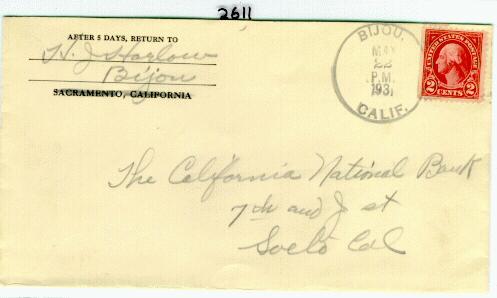 2611
AFTER 5 DAYS, RETURN TO
H. J. Harlow
Bijou
SACRAMENTO, CALIFORNIA
BIJOU.
MAY
22
P.M.
1931
CALIF.
UNITED STATES POSTAGE
2 CENTS 2
The California National Bank
7th and J st
Sacto Cal